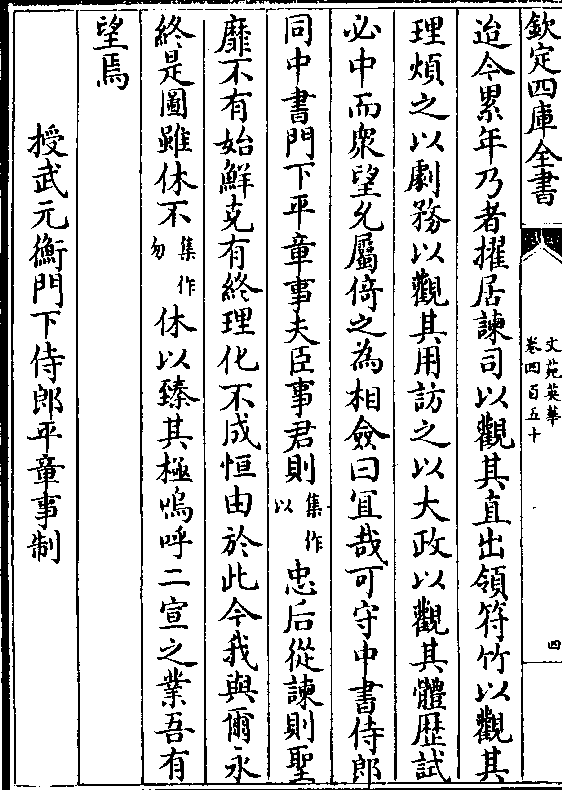 欽定四庫全書
文苑英華
卷四百五十
四
迨今累年乃者擢居諫司以觀其直出領符竹以觀其
理煩之以劇務以觀其用訪之以大政以觀其體歴試
必中而衆望允屬倚之為相僉曰宜哉可守中書侍郎
同中書門下平章事夫臣事君則集作以忠后從諫則聖
靡不有始鮮克有終理化不成恒由於此今我與爾永
終是圖雖休不集作勿休以臻其極嗚呼二宣之業吾有
望焉
授武元衡門下侍郎平章事制